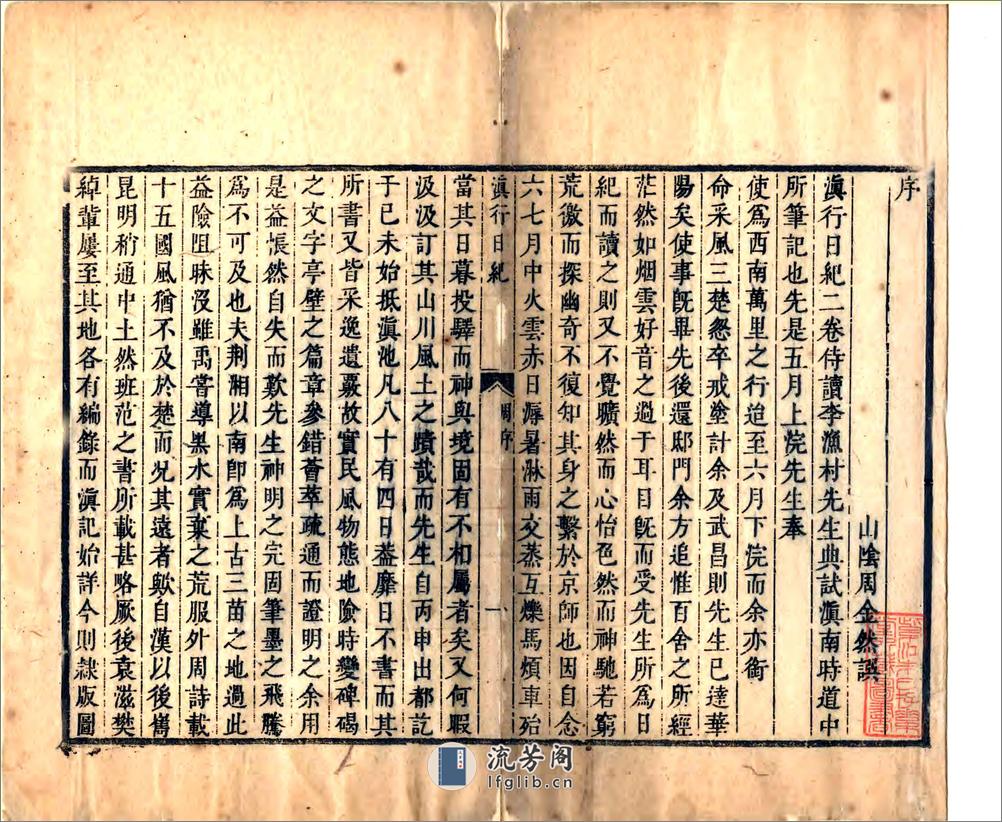 序
山陰周金然譔
滇行日紀二卷侍讀李漁村先生典試滇南時道中
所筆記也先是五月上浣先生奉
使爲西南萬里之行迨至六月下浣而余亦銜
命采風三楚怱卒戒塗計余及武昌則先生已達華
陽矣使事旣畢先後還邸門余方追惟百舍之所經
茫然如烟雲好音之過于耳目旣而受先生所爲日
紀而讀之則又不覺曠然而心怡色然而神馳若窮
荒徼而探幽奇不復知其身之繫於京師也因自念
六七月中火雲赤日溽暑淋雨交蒸互爍馬煩車殆
滇行日紀
周序
一
當其日暮投驛而神與境固有不相屬者矣又何暇
汲汲訂其山川風土之蹟哉而先生自丙申出都訖
于已未始抵滇池凡八十有四日葢靡日不書而其
所書又皆采逸遺覈故實民風物態地險時變碑碣
之文字亭壁之篇章參錯薈萃疏通而證明之余用
是益悵然自失而歎先生神明之完固筆墨之飛騰
爲不可及也夫荆湘以南卽爲上古三苗之地過此
益險阻昧沒雖禹嘗導黑水實棄之荒服外周詩載
十五國風猶不及於楚而况其遠者歟自漢以後嶲
昆明稍通中土然班范之書所載甚略厥後袁滋樊
綽輩屢至其地各有編錄而滇記始詳今則隷版圖
流芳阁
lfglib.cn